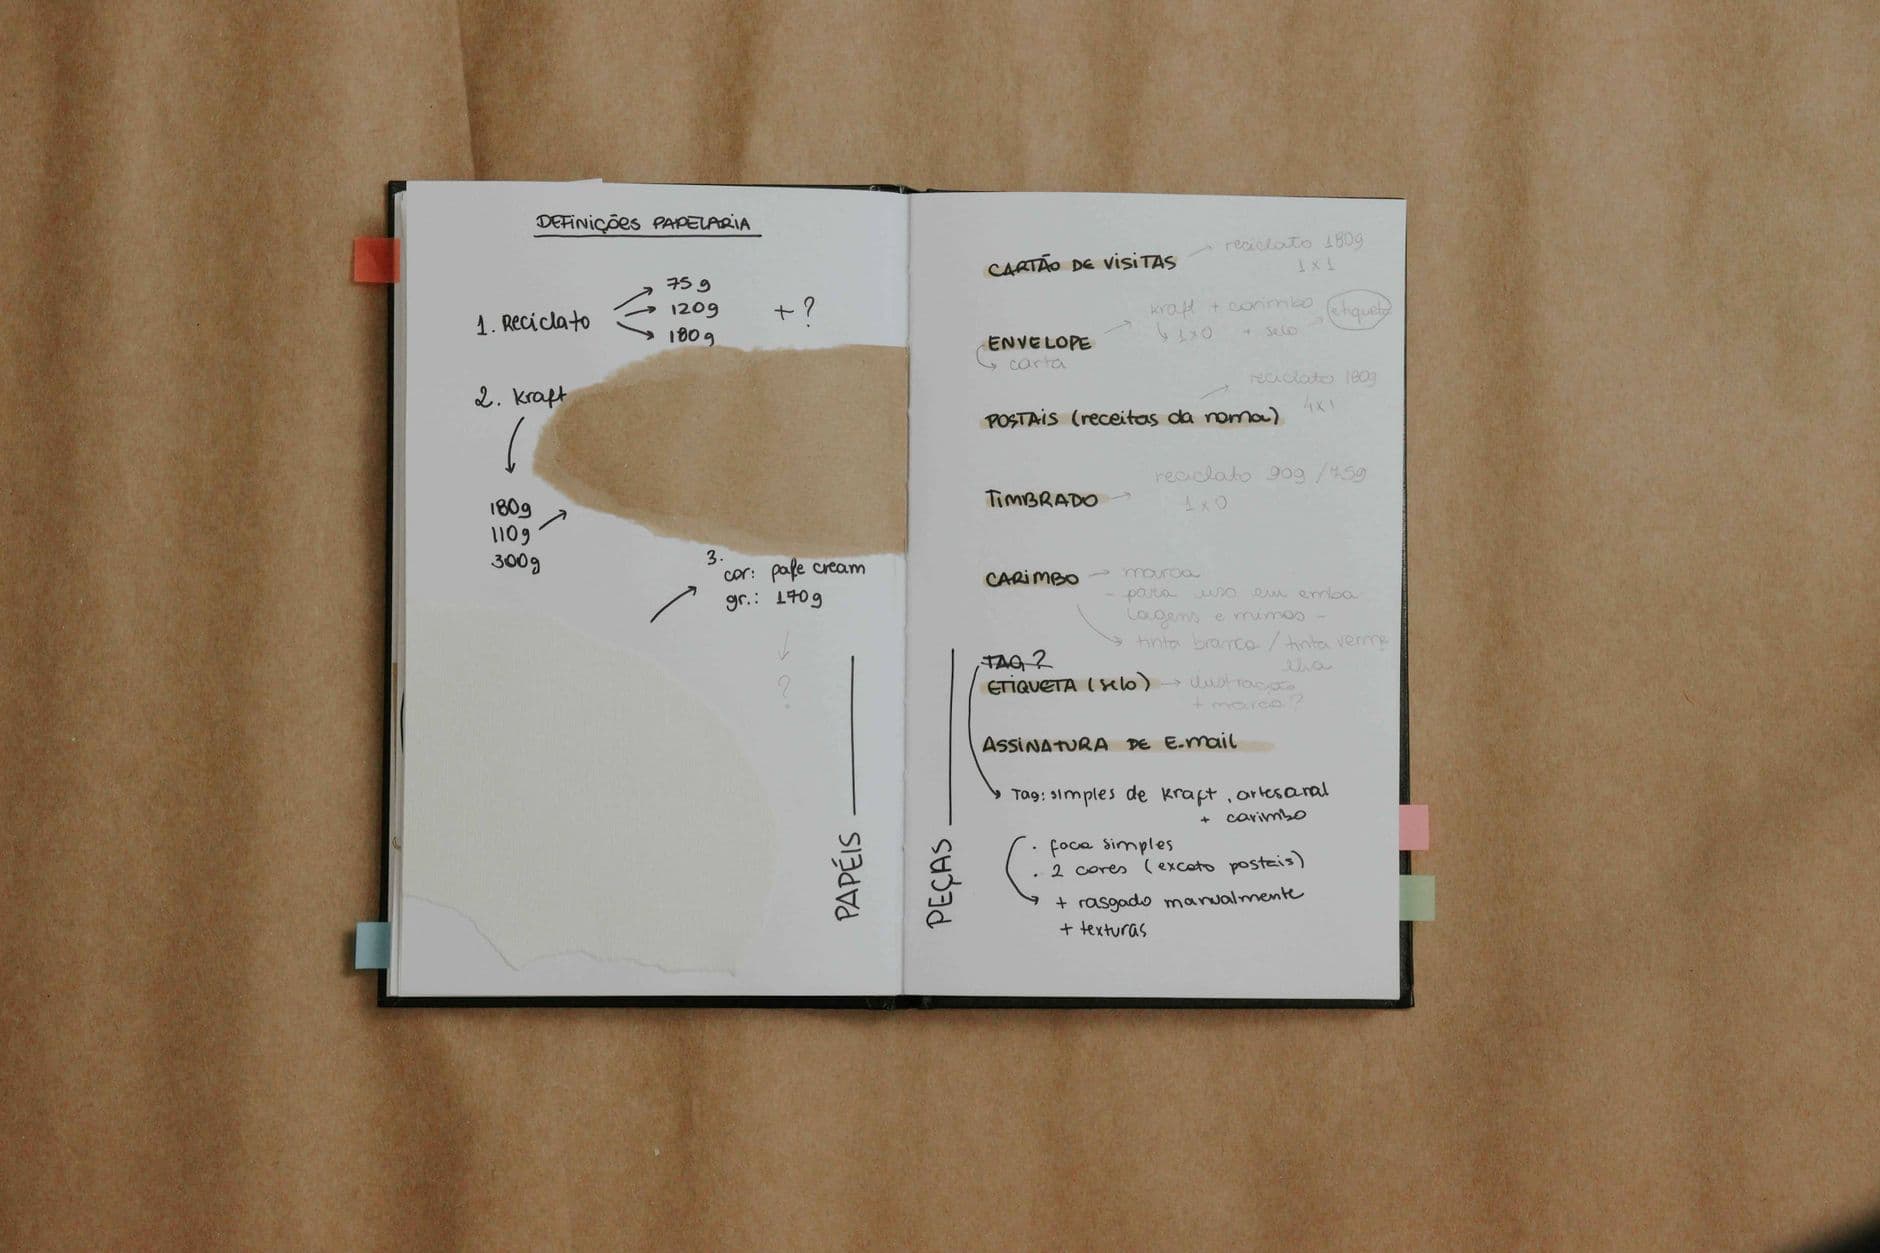 DEFINIÇÕES PAPELARIA
1. Reciclato
75g
120g
180g
+ ?
2. Kraft
180g
110g
300g
3.
cor: pale cream
gr.: 170g
?
PAPÉIS
PEÇAS
CARTÃO DE VISITAS
reciclato 180g
1x1
ENVELOPE
carta
kraft + carimbo
etiqueta
1x0 + selo
POSTAIS (receitas da noma)
reciclato 180g
4x1
TIMBRADO
reciclato 90g / 75g
1x0
CARIMBO
marca
- para uso em emba
lagens e mimos -
tinta branca / tinta verme
lha
TAG?
ETIQUETA (selo)
ilustração
+ marca?
ASSINATURA DE E-mail
Tag: simples de kraft, artesanal
+ carimbo
. faca simples
. 2 cores (exceto postais)
+ rasgado manualmente
+ texturas